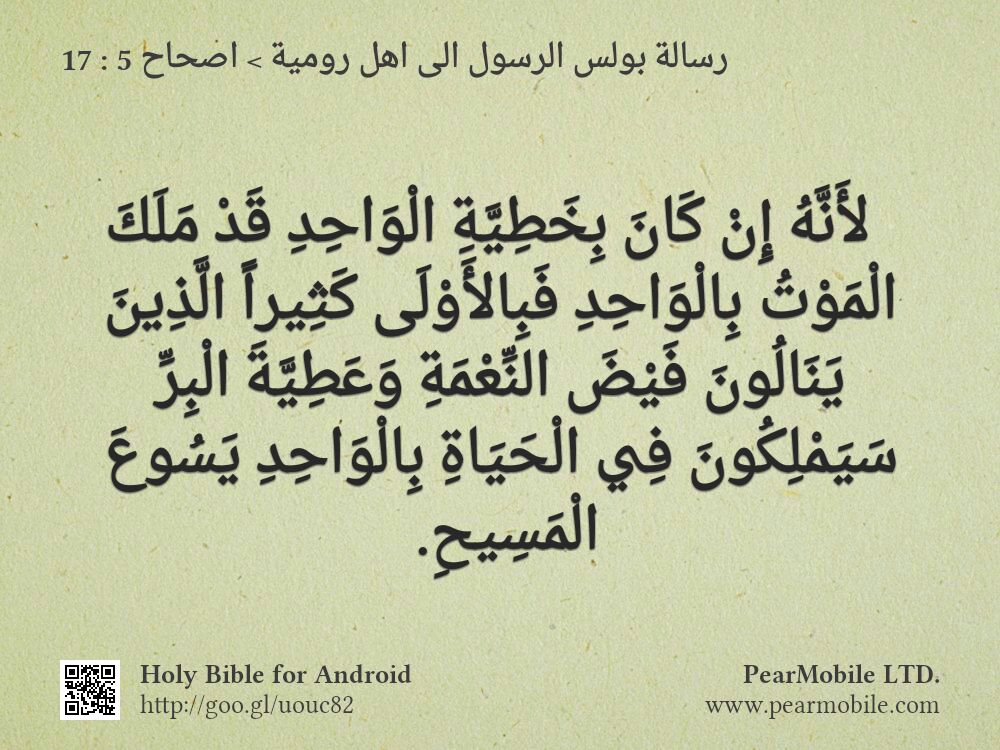 رسالة بولس الرسول الى اهل رومية > اصحاح 5 : 17
لأَنَّهُ إِنْ كَانَ بِخَطِيَّةِ الْوَاحِدِ قَدْ مَلَكَ
الْمَوْتُ بِالْوَاحِدِ فَبِالأَوْلَى كَثِيراً الَّذِينَ
يَنَالُونَ فَيْضَ النِّعْمَةِ وَعَطِيَّةَ الْبِرِّ
سَيَمْلِكُونَ فِي الْحَيَاةِ بِالْوَاحِدِ يَسُوعَ
الْمَسِيحِ.
Holy Bible for Android
http://goo.gl/uouc82
PearMobile LTD.
www.pearmobile.com